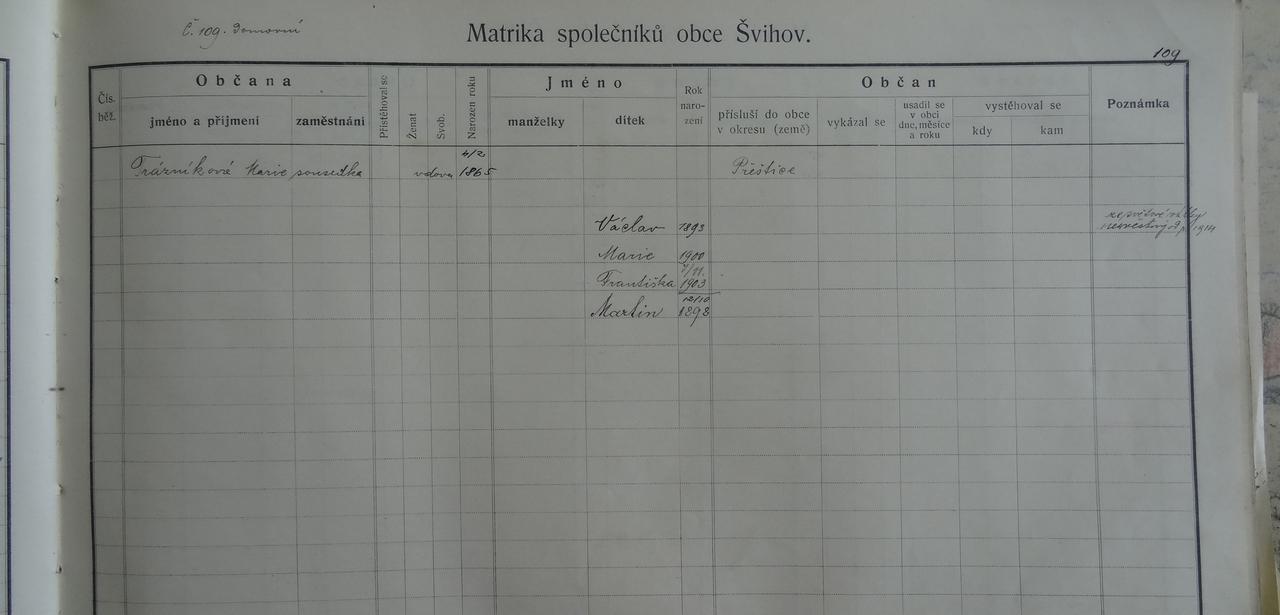 Č. 109. Domovní
Matrika společníků obce Švihov.
109
Čís. běž.
Občana
jméno a příjmení
zaměstnání
Přistěhoval se
Ženat
Svob.
Narozen roku
Jméno
manželky
dítek
Rok naro- zení
Občan
přísluší do obce v okresu (země)
vykázal se
usadil se v obci dne, měsíce a roku
vystěhoval se
kdy
kam
Poznámka
4/2
Trázníková Marie sousedka vdova 1865 Přeštice
Václav 1893 ze světové války
nezvěstný od 1914
Marie 1900
7/11.
Františka 1903
12/10
Martin 1898